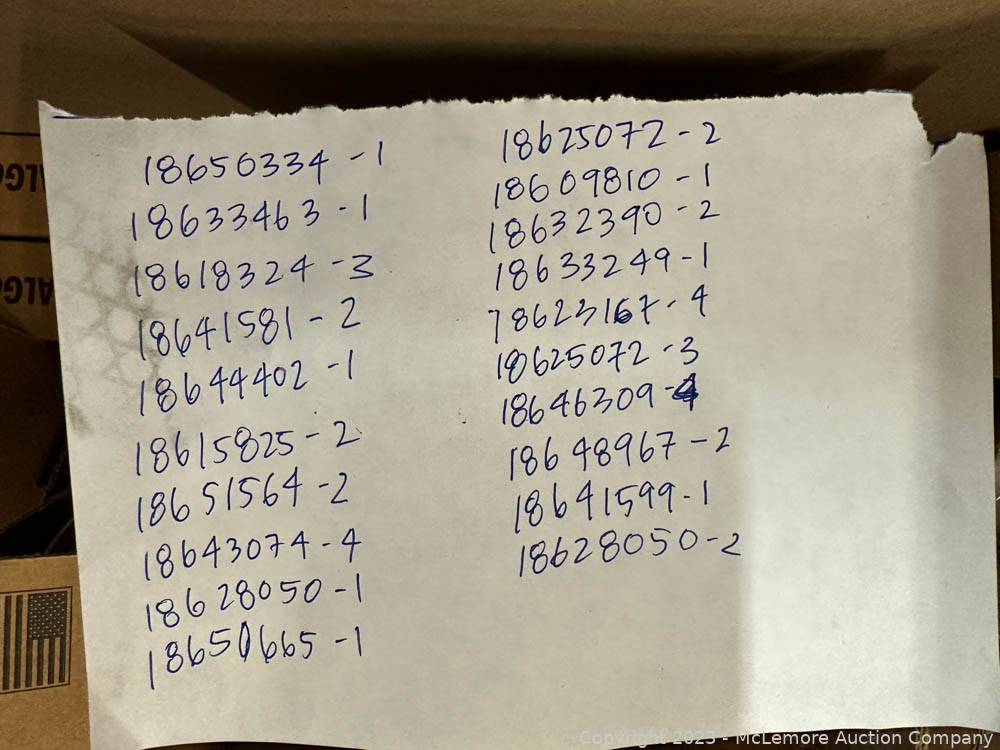 18650334 - 1
18633463 - 1
18618324 - 3
18641581 - 2
18644402 - 1
18615825 - 2
18651564 - 2
18643074 - 4
18628050 - 1
18650665 - 1
18625072 - 2
18609810 - 1
18632390 - 2
18633249 - 1
18623167 - 4
18625072 - 3
18646309 - 4
18648967 - 2
18641599 - 1
18628050 - 2
Copyright 2023 - McLemore Auction Company